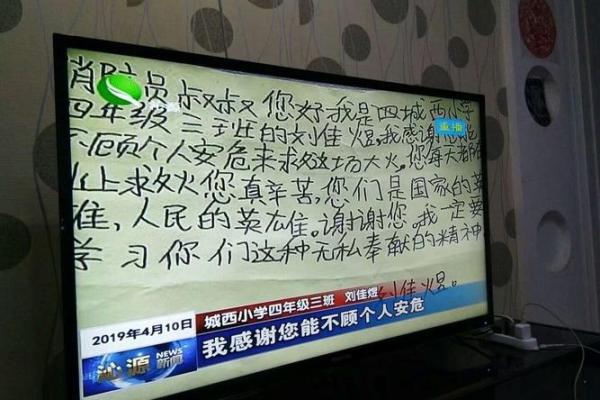 消防员叔叔您好我是四城西小学
四年级三班的刘佳煜。我感谢您能
不顾个人安危来求这场大火。您每天都在
山上求火您真辛苦,您们是国家的英
雄,人民的英雄。谢谢您。我一定要
学习你们这种无私奉献的精神
刘佳煜。
重播
城西小学四年级三班 刘佳煜
2019年4月10日
我感谢您能不顾个人安危
沁源 NEWS 新闻